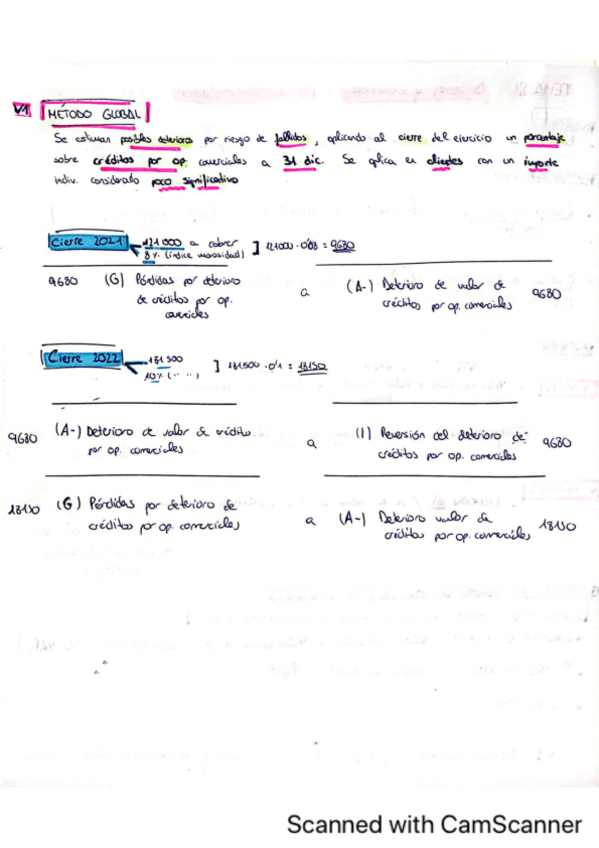 V1 MÉTODO GLOBAL
Se estiman posibles deterioros por riesgo de fallidos, aplicando al cierre del ejercicio un porcentaje
sobre créditos por op. comerciales a 31 dic. Se aplica en clientes con un importe
indiv. considerado poco significativo
Cierre 2021 121000 a cobrar
8% (índice morosidad) ] 121000 · 0'08 = 9680
9680 (G) Pérdidas por deterioro de créditos por op. comerciales a (A-) Deterioro de valor de créditos por op. comerciales 9680
Cierre 2022 181500
10% (" ") ] 181500 · 0'1 = 18150
9680 (A-) Deterioro de valor de crédito por op. comerciales a (I) Reversión del deterioro de créditos por op. comerciales 9680
18150 (G) Pérdidas por deterioro de créditos por op. comerciales a (A-) Deterioro valor de créditos por op. comerciales 18150
Scanned with CamScanner